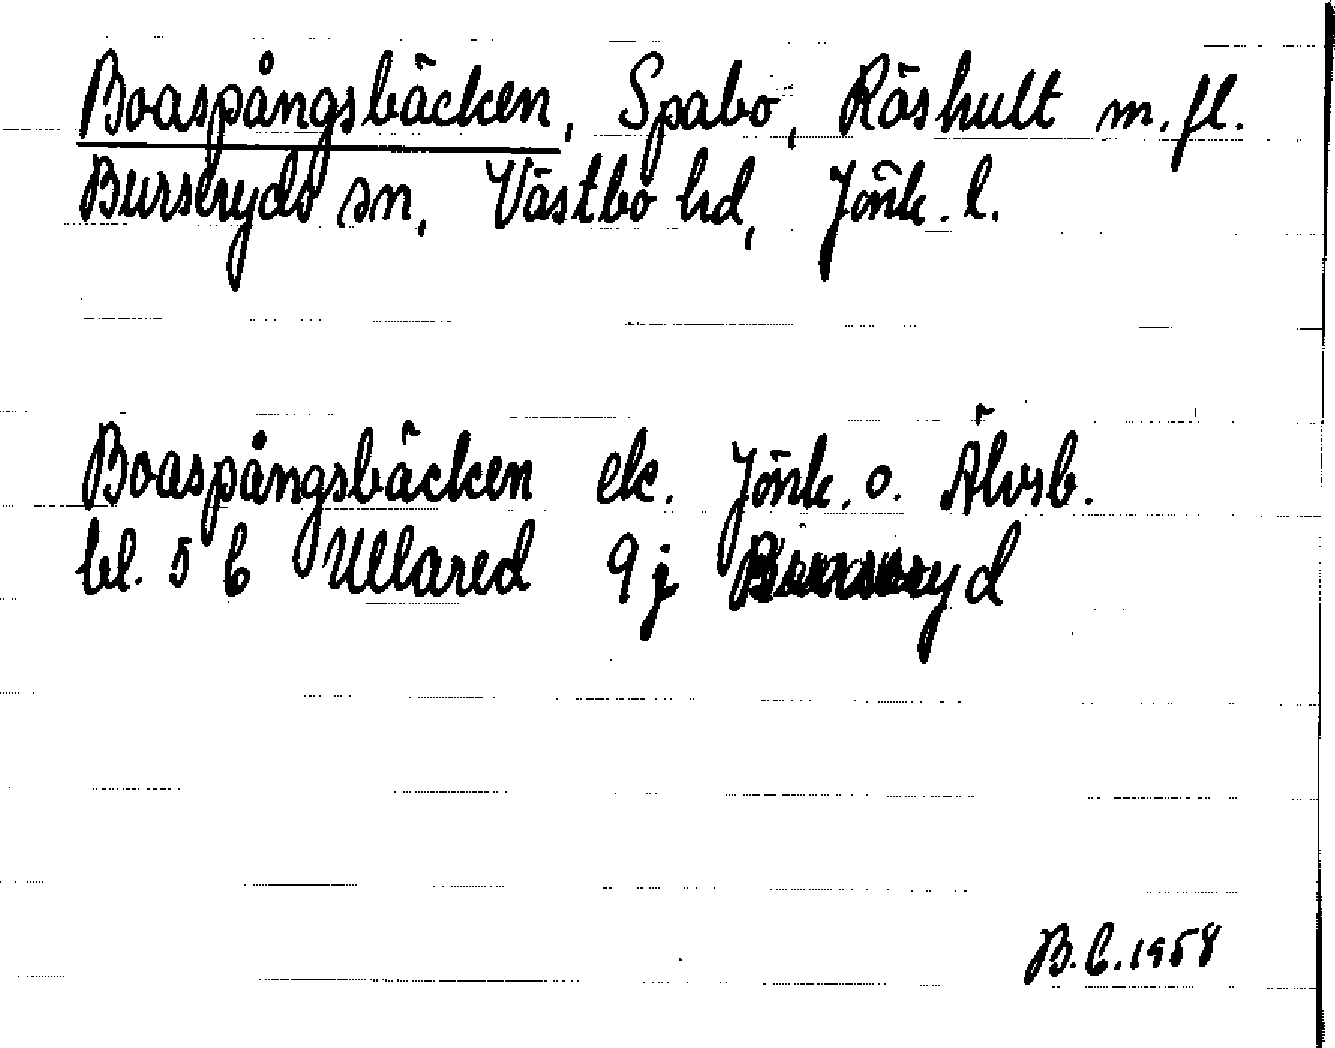 Boaspångsbäcken, Spabo, Råshult m.fl.
Burseryds sn, Västbo hd, Jönk. l.
Boaspångsbäcken ek. Jönk. o. Älvsb.
bl. 5 C Ullared 9 j Burseryd
B.C. 1958